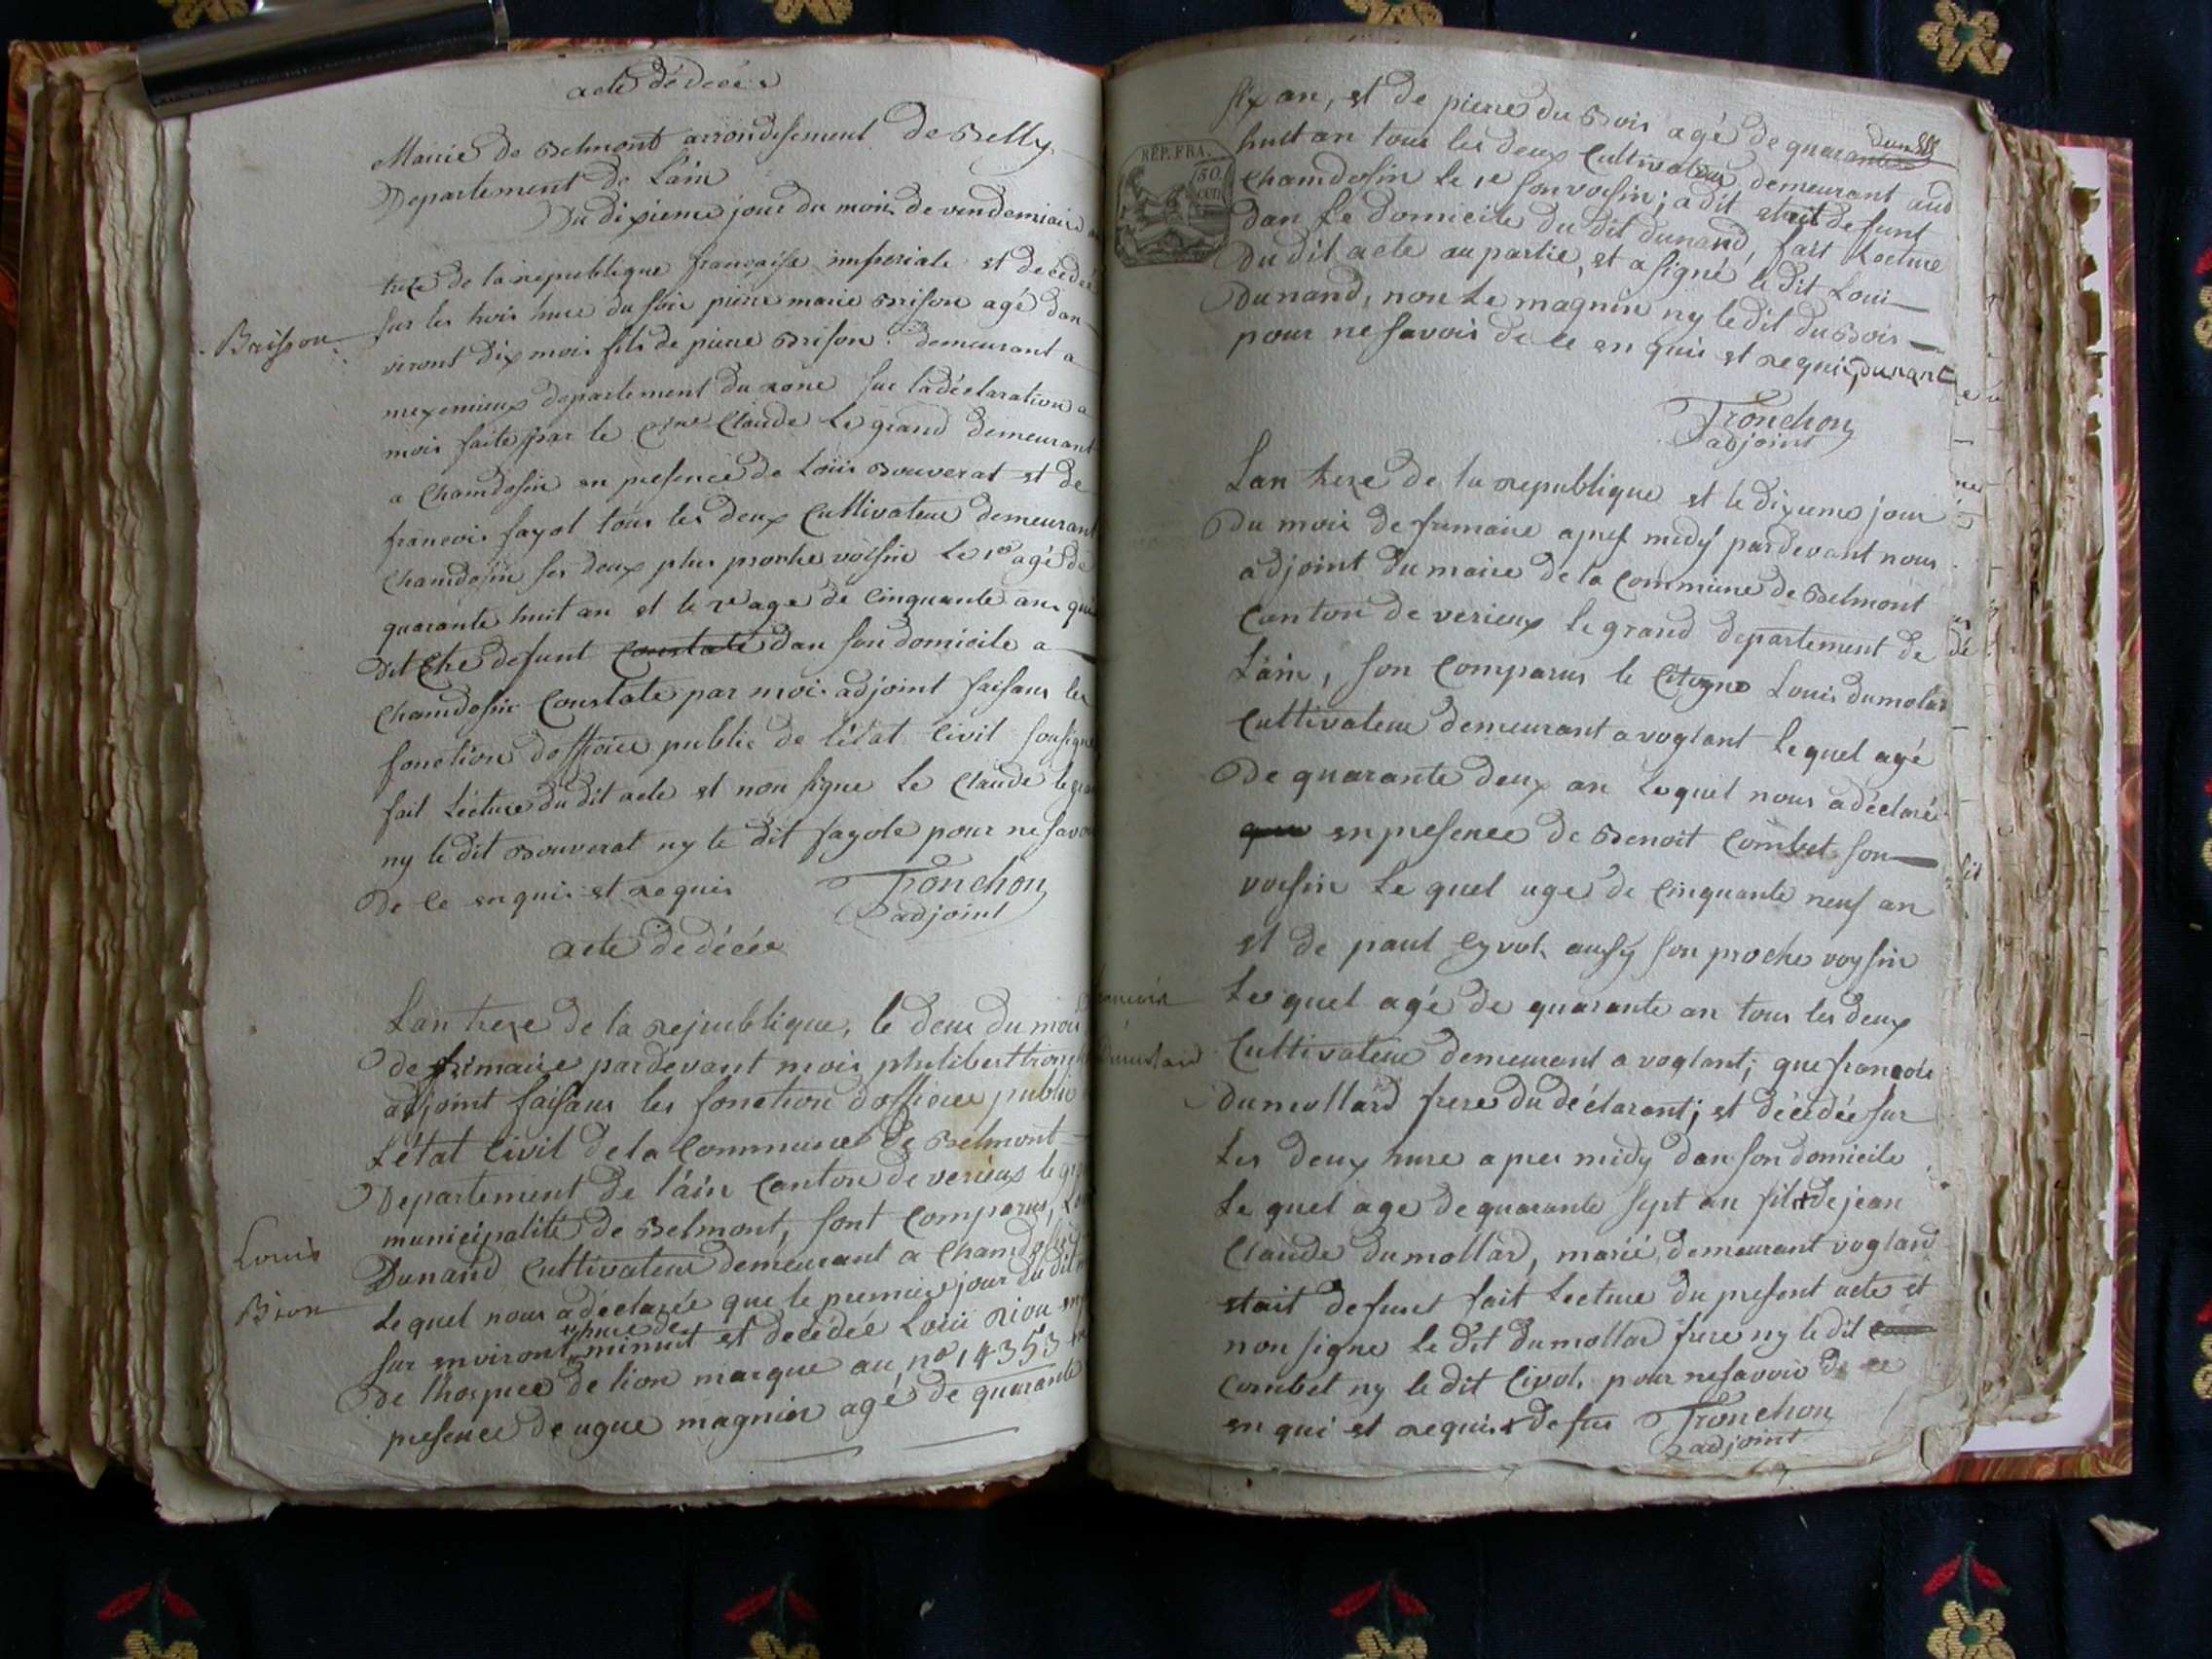 acte de décès
Mairie de Belmont arrondisement de Belly
Departement de Lain
Du dixieme jour du mois de vendemiaire
treze de la republique francaise imperiale et decedée
Brisson
sur les trois hure du soir pierre marie Brison agé dan
viront dix mois fils de pierre Brison demeurant a
mexemieux departement du rone sur la déclaration a
mois faite par le Claude Legrand demeurant
a Chamdosin en presence de Louis Bouverat et de
francois fayol tous les deux Cultivateur demeurant
Chamdosin ses deux plus proche voisin le 1er agé de
quarante huit an et le 2e age de Cinquante an qui
dit Etre defunt Constate dan son domicile a
Chamdosin Constate par moi adjoint faisans les
fonction dofficie public de létat Civil sousigne
fait Lecture du dit acte et non signe Le Claude
ny le dit Bouverat ny le dit fayole pour ne savoi
de ce enquis et requis Tronchon
adjoint
acte de décée
Lan treze de la republique, le deux du mois
de frimaire pardevant mois philibert
adjoint faisans les fonction dofficier public
Létat Civil de la Commune de Belmont
Departement de lain Canton de verieux le
municipalité de Belmont, sont comparus,
Louis
Dunand Cultivateur demeurant a Chamdosin
Bion
Lequel nous a déclarée que le premier jour du dit
sur environt minuit est decédée Louis Bion
de lhospice de lion marque au no 14353
presence de ugue magnin agé de quarante
six an, et de pierre du Bois agé de quarante
REP. FRA.
50
cen
huit an tous les deux Cultivateur demeurant aud
Chamdosin le 1e son voisin; a dit etait defunt
dan Le domicile du dit dunand, fait Lecture
du dit acte au partie, et a signé le dit Loui
Dunand, non Le magnin ny le dit du Bois
pour ne savoir de ce enquis et requis, dunant
Tronchon
adjoint
Lan treze de la republique et le dixieme jour
du mois de frimaire apres midy pardevant nous
adjoint du maire de la Commune de Belmont
Canton de verieux le grand departement de
Lain, son Comparus le Citoyne Louis dumolar
Cultivateur demeurant a voglant Lequel agé
de quarante deux an Lequel nous a déclaré
que en presence de Benoit Combet son
voisin Le quel age de Cinquante neuf an
et de paul Cyvot aussy son proche voysin
francois
Lequel agé de quarante an tous les deux
Cultivateur demeurant a voglant; que francois
dumollard frere du déclarant; et décédée sur
Les deux hure apres midy dan son domicile
Le quel age de quarante sept an fils de jean
Claude dumollard, marié demeurant voglard
etait defunt fait Lecture du present acte et
non signe Le dit dumollar frere ny le dit
Combet ny le dit Civot, pour ne savoir de ce
en qui et requis defus Tronchon
adjoint